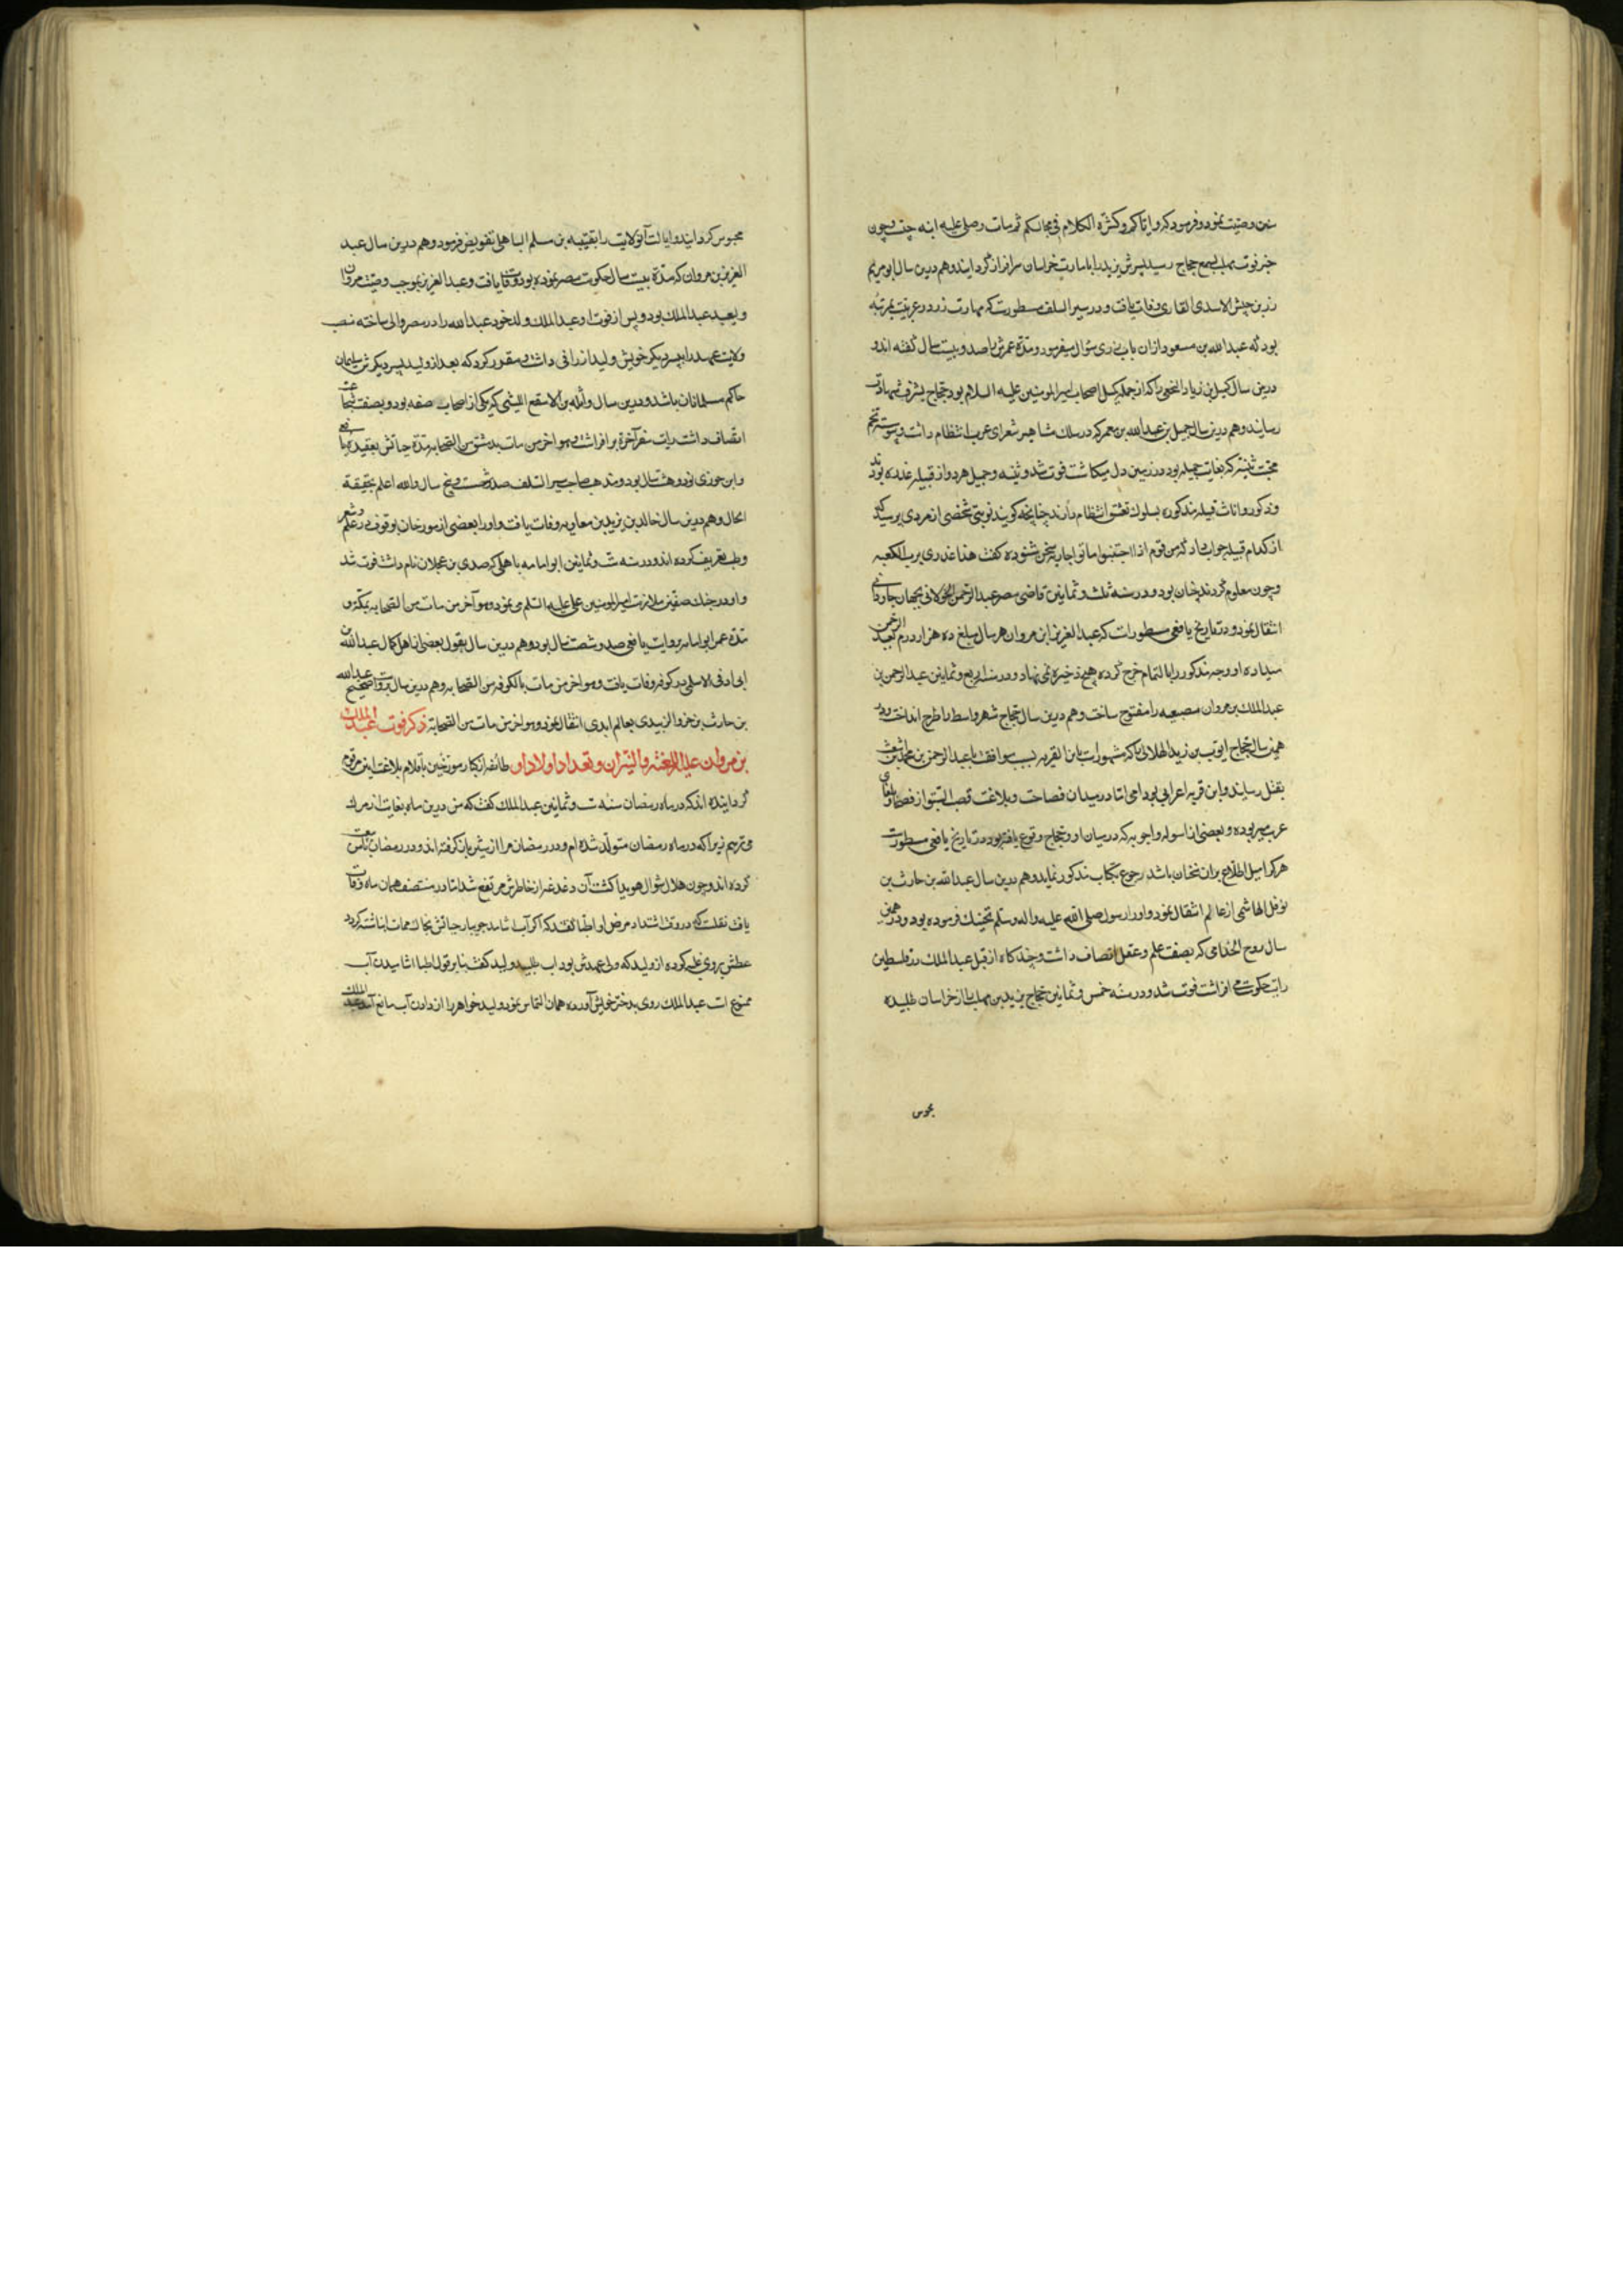 سخن وصیت نمود و فرمود که و ایاکم و کثرة الکلام فی مجالسکم ثم مات و صلی علیه ابنه حبیب چون
خبر فوت مهلب بسمع حجاج رسید پسرش یزید را بامارت خراسان سرافراز گردانید و هم درین سال ابو مریم
زر بن حبیش الاسدی القاری وفات یافت و در سیر السلف مسطورست که مهارت زر در عربیت بمرتبه
بود که عبدالله بن مسعود ازان باب از وی سؤال میفرمود و مدة عمرش را صد و بیست سال گفته اند و
درین سال کمیل بن زیاد النخعی را که از جمله کمل اصحاب امیر المومنین علیه السلام بود حجاج بشرف شهادت
رسانید و هم درین سال جمیل بن عبدالله بن معمر که در سلک مشاهیر شعرای عرب انتظام داشت و پیوسته تخم
محبت بثینه که بغایت جمیله بود در زمین دل میکاشت فوت شد و بثینه و جمیل هر دو از قبیله عذره بودند
و ذکور و اناث قبیله مذکوره بسلوک تعشق انتظام دارند چنانچه گویند نوبتی شخصی از مردی پرسید که
از کدام قبیله جواب داد که من قوم اذا احبوا ماتوا جاریه سخن شنوده گفت هذا عذری برب الکعبه
و چون معلوم کردند چنان بود و در سنه ثلث و ثمانین قاضی مصر عبد الرحمن الخولانی بجهان جاودانی
انتقال نمود و در تاریخ یافعی مسطورات که عبد العزیز ابن مروان هر سال مبلغ ده هزار درم بعبد الرحمن
میداده او وجه مذکور را بالتمام خرج کرده هیچ ذخیره نمی نهاد و در سنه اربع و ثمانین عبد الرحمن بن
عبد الملک بن مروان مصیصه را مفتوح ساخت و هم درین سال حجاج شهر واسط را طرح انداخت و در
همین سال حجاج ایوب بن زید الهلالی را که مشهورات بابن القریه بسبب موافقت با عبد الرحمن بن محمد بن اشعث
بقتل رسانید و ابن قریه اعرابی بود امی اما در میدان فصاحت و بلاغت قصب السبق از فصحا و بلغای
عرب می ربوده و بعضی از اسوله و اجوبه که در میان او و حجاج وقوع یافته بود در تاریخ یافعی مسطورست
هر کرا میل اطلاع بران سخنان باشد رجوع بکتاب مذکور نماید و هم درین سال عبدالله بن حارث بن
نوفل الهاشمی از عالم انتقال نمود و او را رسول صلی الله علیه و اله و سلم تحنیک فرموده بود و در همین
سال روح الجذامی که بصفت علم و عقل اتصاف داشت و چند گاه از قبل عبد الملک در فلسطین
رایت حکومت می افراشت فوت شد و در سنه خمس و ثمانین حجاج یزید بن مهلب را از خراسان طلبیده
محبوس
محبوس گردانید و ایالت آن ولایت را بقتیبه بن مسلم الباهلی تفویض فرمود و هم درین سال عبد
العزیز بن مروان که مدة بیست سال حکومت مصر نموده بود وفات یافت و عبد العزیز بموجب وصیت مروان
ولیعهد عبد الملک بود و پس از فوت او عبد الملک ولد خود عبدالله را در مصر والی ساخته منصب
ولایت عهد را بپسر دیگر خویش ولید ارزانی داشت و مقرر کرد که بعد از ولید پسر دیگرش سلیمان
حاکم مسلمانان باشد و درین سال واثلة بن الاسقع اللیثی که یکی از اصحاب صفه بود و بصفت شجاعت
اتصاف داشت رایت سفر آخرة برافراشت و هو اخر من مات بدمشق من الصحابه مدة حیاتش بعقیده یافعی
و ابن جوزی نود و هشت سال بود و مذهب صاحب سیر السلف صد و شصت و پنج سال و الله اعلم بحقیقة
الحال و هم درین سال خالد بن یزید بن معاویه وفات یافت و او را بعضی از مورخان بوقوف در علم و شعر
و طب تعریف کرده اند و در سنه ست و ثمانین ابو امامه باهلی که صدی بن عجلان نام داشت فوت شد
و او در جنک صفین ملازمت امیر المومنین علی علیه السلم می نمود و هو آخر من مات من الصحابه بمکه و
مدة عمر ابو امامه بروایت یافعی صد و شصت سال بود و هم درین سال بقول بعضی از اهل کمال عبدالله بن
ابی اوفی الاسلمی در کوفه وفات یافت و هو اخر من مات بالکوفه من الصحابه و هم درین سال بروایت صحیح عبدالله
بن حارث بن جزء الزبیدی بعالم ابدی انتقال نمود و هو اخر من مات من الصحابة ذکر فوت عبد الملک
بن مروان علیه اللعنة و النیران و تعداد اولاد او طائفه از نکارسوز خین باقلام بلاغت ایین مرقوم
گردانیده اند که در ماه رمضان سنه ست و ثمانین عبد الملک گفت که من درین ماه بغایت از مرک
می ترسم زیرا که در ماه رمضان متولد شده ام و در رمضان مرا از شیر باز گرفته اند و در رمضان با من بیعت
کرده اند و چون هلال شوال هویدا گشت آن دغدغه از خاطرش مرتفع شد اما در منتصف همان ماه وفات
یافت نقلست که در وقت اشتداد مرض او اطبا گفتند که اگر آب اشامد جویبار حیاتش بخاک ممات انباشته گردد
عطش بروی غلبه کرده از ولید که ولی عهدش بود اب طلبید ولید گفت بنا بر قول اطبا اشامیدن آب
ممنوع است عبد الملک روی بدختر خویش آورده همان التماس نمود ولید خواهر را از دادن آب مانع آمد عبد الملک